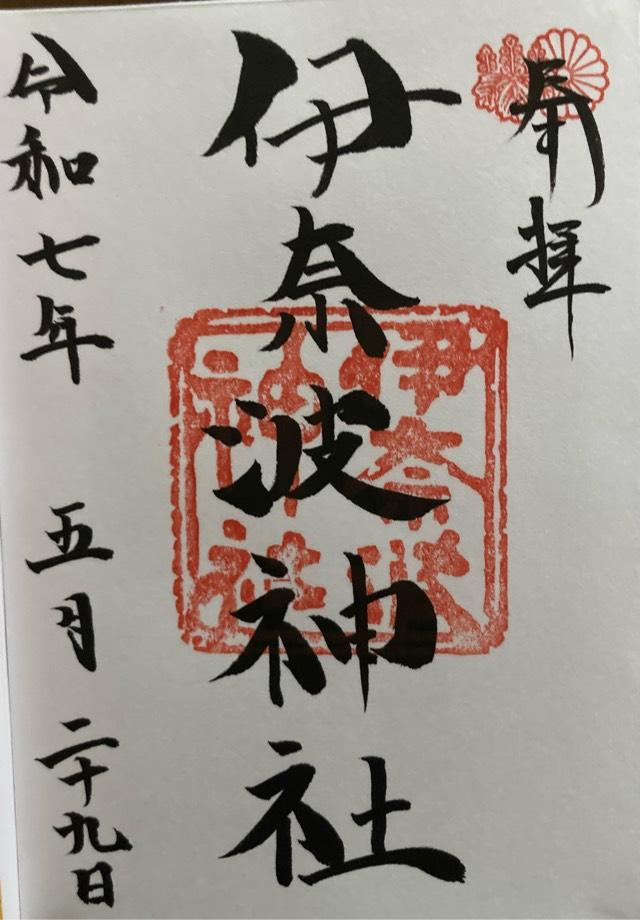 奉拝
伊奈波神社
伊奈波
神社
令和七年 五月二十九日